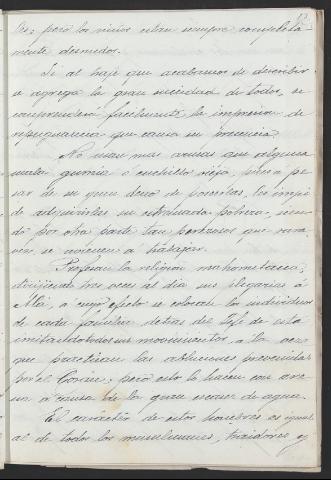 les; pero los niños estan siempre completa
mente desnudos.
Si al traje que acabamos de describir
se agrega la gran suciedad de todos, se
comprenderá facilmente la impresion de
repugnancia que causa su presencia.
No usan mas armas que alguna
mala gumia ó cuchillo viejo, pues a pe
sar de su gran deseo de poseerlas, les impi
de adquirirlas su extremada pobreza, sien
do por otra parte tan perezosos que rara
vez se avienen á trabajar.
Profesan la religion mahometana,
dirigiendo tres veces al dia sus plegarias á
Alá, a cuyo efecto se colocan los individuos
de cada familia detras del Jefe de esta
imitando todos sus movimientos, á la vez
que practican las abluciones prevenidas
por el Coran; pero esto lo hacen con are
na á causa de lo que escasea de agua.
El carácter de estos hombres es igual
al de todos los musulmanes, traidores y